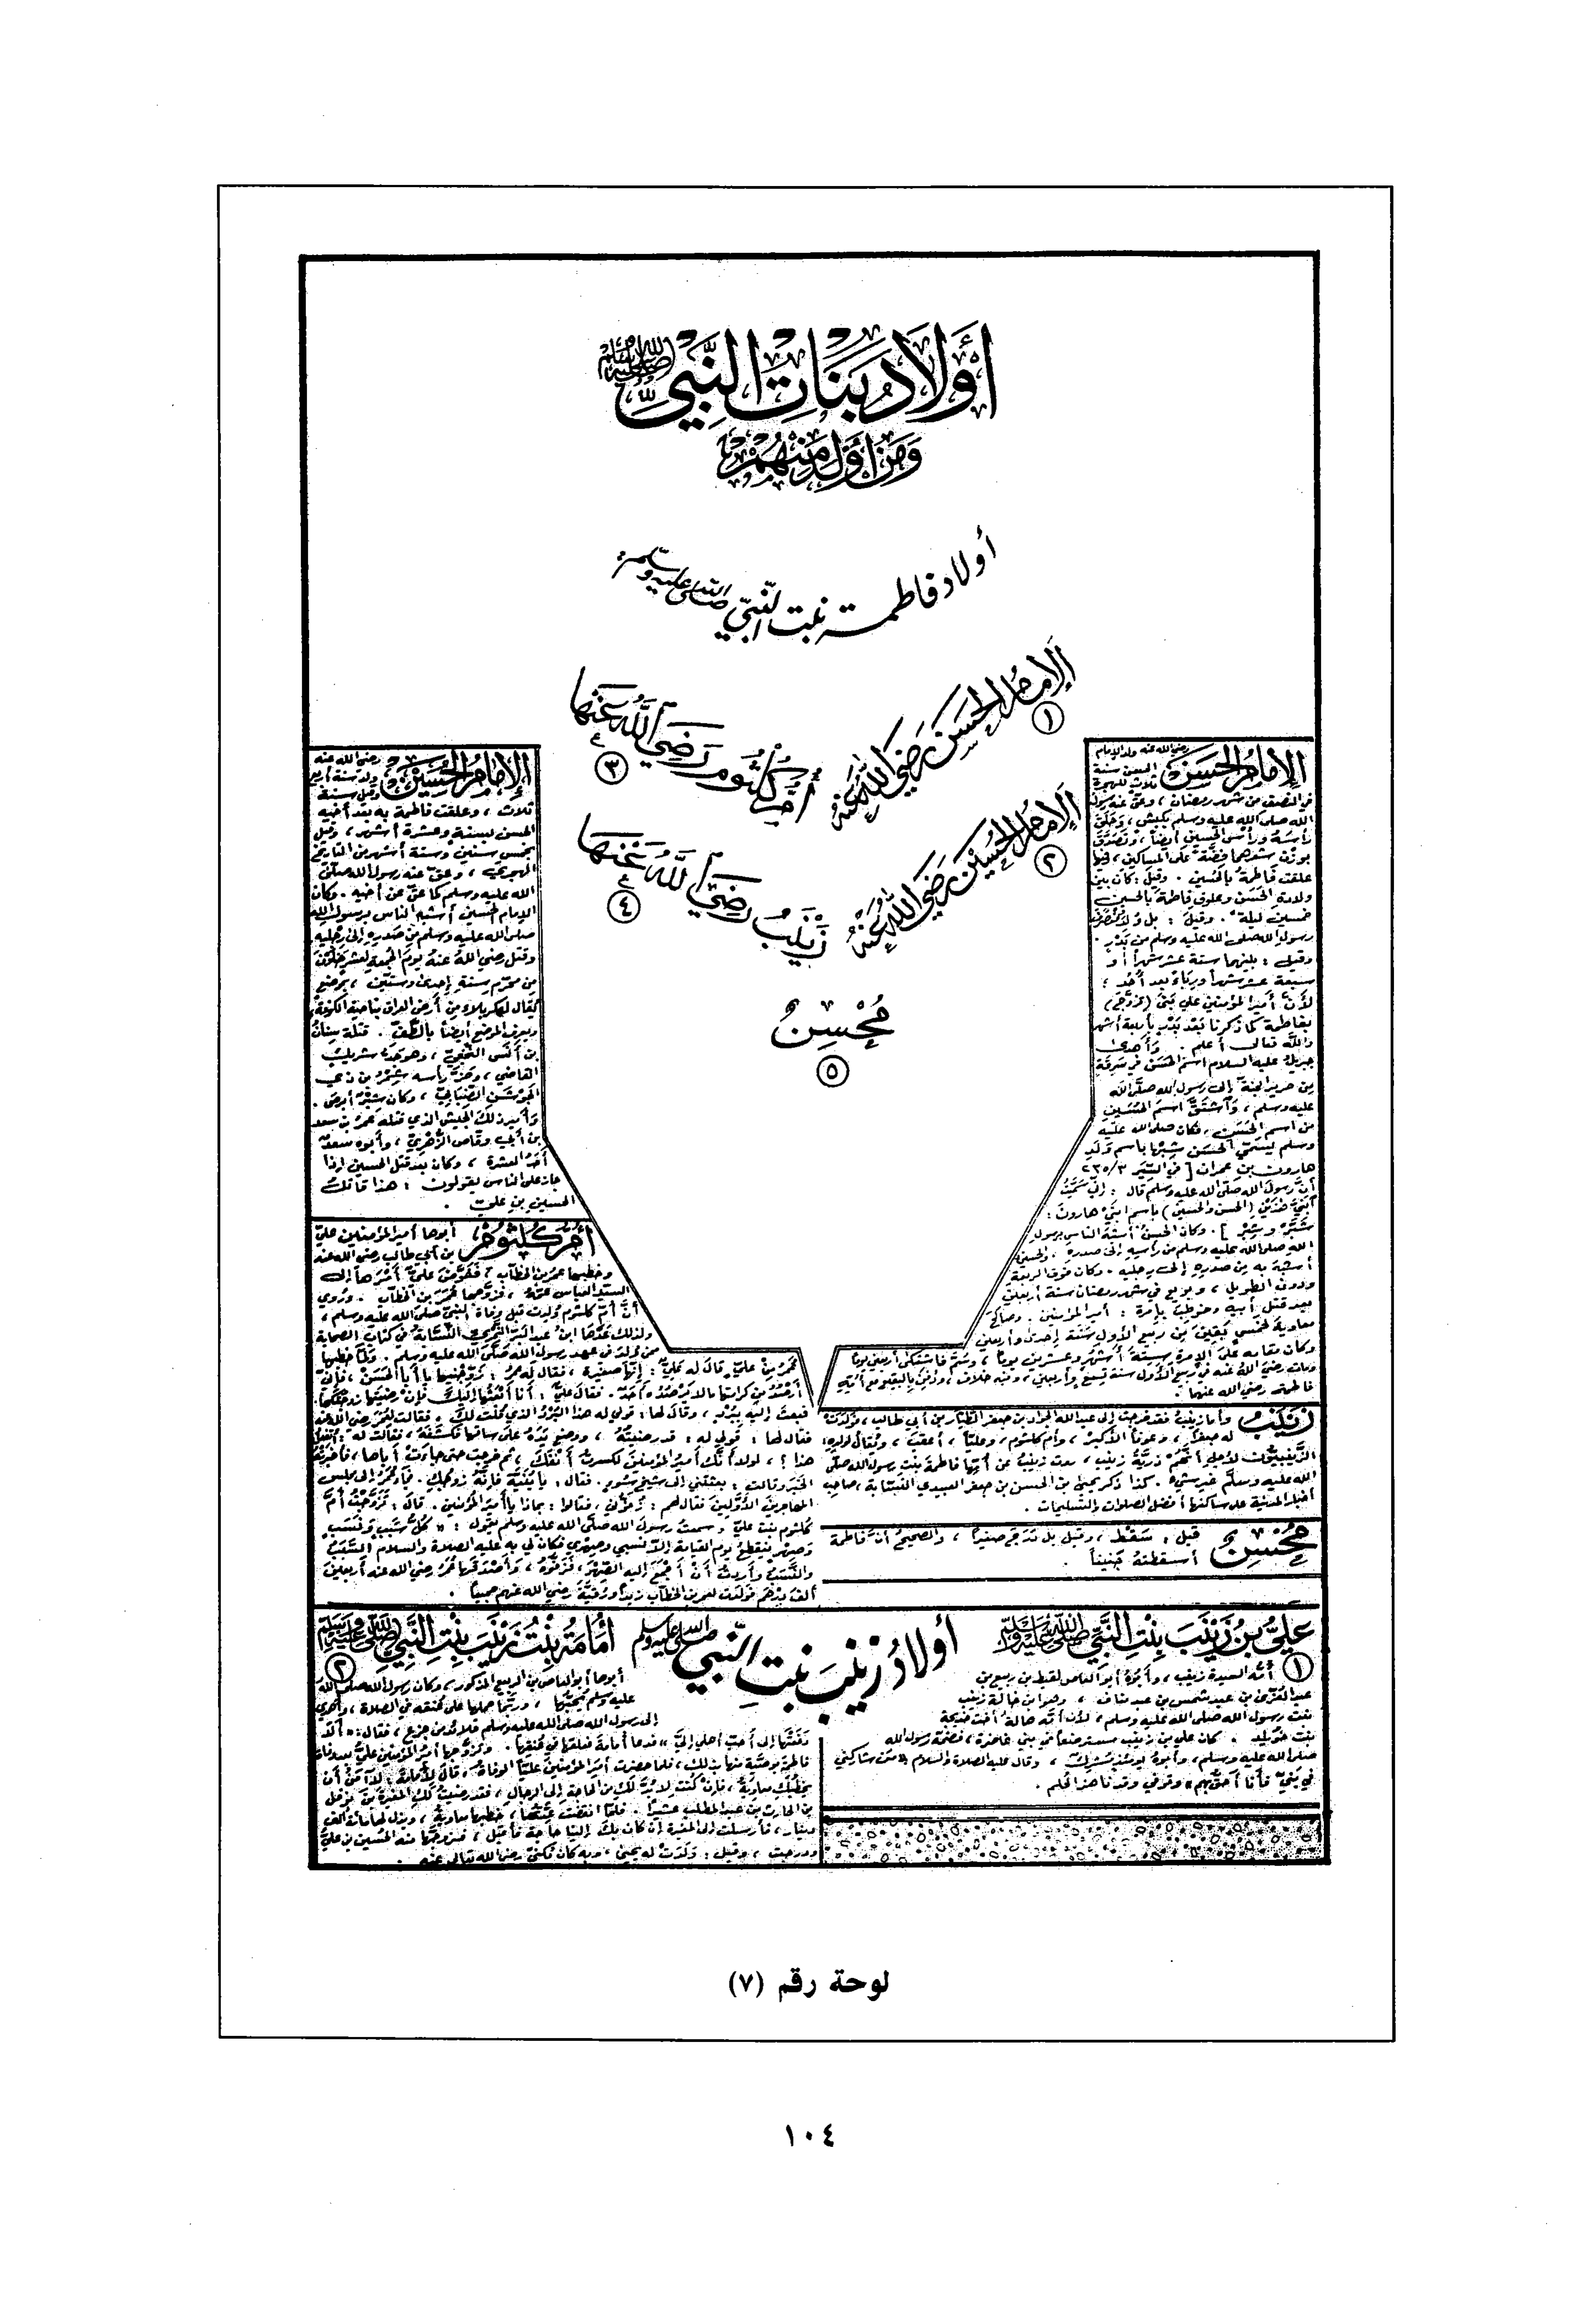 أَوْلَادُ بَنَاتِ النَّبِيِّ ﷺ
وَمَنْ أَوْلَدَ مِنْهُمْ
أولاد فاطمة بنت النبي صلى الله عليه وسلم
الإمام الحسن رضي الله عنه
١
أم كلثوم رضي الله عنها
٣
الإمام الحسين رضي الله عنه
٢
زينب رضي الله عنها
٤
مُحْسِنٌ
٥
الإمام الحسن رضي الله عنه ولد الإمام
الحسن سنة
ثلاث للهجرة
في النصف من شهر رمضان، وعق عنه رسول
الله صلى الله عليه وسلم بكبش، وحلق
رأسه ورأس الحسين أيضاً، وتصدق
بوزن شعرهما فضة على المساكين، فيها
علقت فاطمة بالحسين. وقيل: كان بين
ولادة الحسن وعلوق فاطمة بالحسين
خمسين ليلة. وقيل: بل ولد
رسول الله صلى الله عليه وسلم من بدر.
وقيل: بينهما ستة عشر شهراً أو
سبعة عشر شهراً بعد أحد؛
لأن أمير المؤمنين علي بنى (تزوج)
بفاطمة كما ذكرنا بعد بدر بأربعة أشهر
والله تعالى أعلم. وأهدى
جبريل عليه السلام اسم الحسن في سرقة
من حرير الجنة إلى رسول الله صلى الله
عليه وسلم، واشتق اسم الحسين
من اسم الحسن، فكان صلى الله عليه
وسلم يسمي الحسن شبراً باسم ولد
هارون بن عمران [ في السير ٣/٢٣٥
أن رسول الله صلى الله عليه وسلم قال: إني سميت
ابني هذين (الحسن والحسين) باسم ابني هارون:
شبر وشبير ]. وكان الحسن أشبه الناس برسول
الله صلى الله عليه وسلم من رأسه إلى صدره. والحسين
أشبه به من صدره إلى رجليه. وكان فوق الربعة
ودون الطويل، وبويع في شهر رمضان سنة أربعين
بعد قتل أبيه وخوطب بإمرة: أمير المؤمنين. وصالح
معاوية لخمس بقين من ربيع الأول سنة إحدى وأربعين
وكان مقامه على الإمرة ستة أشهر وعشرين يوماً، وسم فاشتكى أربعين يوماً
ومات رضي الله عنه في ربيع الأول سنة تسع وأربعين، وفيه خلاف، ودفن بالبقيع مع أمه
فاطمة رضي الله عنها.
الإمام الحسين رضي الله عنه
ولد سنة أربع
وقيل سنة
ثلاث، وعلقت فاطمة به بعد أخيه
الحسن بسنة وعشرة أشهر، وقيل
بخمس سنين وستة أشهر من التاريخ
الهجري، وعق عنه رسول الله صلى
الله عليه وسلم كما عق عن أخيه. وكان
الإمام الحسين أشبه الناس برسول الله
صلى الله عليه وسلم من صدره إلى رجليه
وقتل رضي الله عنه يوم الجمعة لعشر خلون
من محرم سنة إحدى وستين، بموضع
يقال له كربلاء من أرض العراق بناحية الكوفة،
ويعرف الموضع أيضاً بالطف. قتله سنان
بن أنس النخعي، وهو جد شريك
القاضي، وحز رأسه شمر بن ذي
الجوشن الضبابي، وكان شمر أبرص.
وأمير ذلك الجيش الذي قتله عمر بن سعد
بن أبي وقاص الزهري، وأبوه سعد
أحد العشرة، وكان بعد قتل الحسين إذا
جاز على الناس يقولون: هذا قاتل
الحسين بن علي.
أم كلثوم أبوها أمير المؤمنين علي
بن أبي طالب رضي الله عنه
وخطبها عمر بن الخطاب، ففوض علي أمرها إلى
السيد العباس عمه، فزوجها عمر بن الخطاب. وروي
أن أم كلثوم ولدت قبل وفاة النبي صلى الله عليه وسلم،
ولذلك عدها ابن عبد البر النمري النسابة في كتاب الصحابة
من ولد في عهد رسول الله صلى الله عليه وسلم. ولما خطبها
عمر من علي قال له علي: إنها صغيرة، فقال له عمر: زوجنيها يا أبا الحسن، فإني
أرصد من كرامتها ما لا يرصده أحد. فقال علي: أنا أبعثها إليك فإن رضيتها زوجتكها.
فبعث إليه ببرد، وقال لها: قولي له هذا البرد الذي قلت لك. فقالت لعمر رضي الله عنه
فقال لها: قولي له: قد رضيته، ووضع يده على ساقها فكشفه، فقالت له: أتفعل
هذا؟، لولا أنك أمير المؤمنين لكسرت أنفك، ثم خرجت حتى جاءت أباها، فأخبرته
الخبر وقالت: بعثتني إلى شيخ سوء. فقال: يا بنية فإنه زوجك. فجاء عمر إلى مجلس
المهاجرين الأولين فقال لهم: زفوني، فقالوا: بماذا يا أمير المؤمنين. قال: تزوجت أم
كلثوم بنت علي، وسمعت رسول الله صلى الله عليه وسلم يقول: « كل سبب ونسب
وصهر ينقطع يوم القيامة إلا نسبي وصهري فكان لي به عليه الصلاة والسلام السبب
والنسب وأردت أن أجمع إليه الصهر، فزفوه، وأصدقها عمر رضي الله عنه أربعين
ألف درهم فولدت لعمر بن الخطاب زيداً ورقية رضي الله عنهم جميعاً.
زينب وأما زينب فقد خرجت إلى عبد الله الجواد بن جعفر الطيار بن أبي طالب، فولدت
له جعفراً، وعوناً الأكبر، وأم كلثوم، وعلياً، أعقب، ويقال لولده:
الزينبيون لأجل أنهم ذرية زينب، روت زينب عن أمها فاطمة بنت رسول الله صلى
الله عليه وسلم غير شيء. كذا ذكر يحيى بن الحسن بن جعفر العبيدي النسابة، صاحب
أخبار المدينة على ساكنها أفضل الصلوات والتسليمات.
محسن قيل: سقط، وقيل بل درج صغيراً، والصحيح أن فاطمة
أسقطته جنيناً.
أولاد زينب بنت النبي صلى الله عليه وسلم
علي بن زينب بنت النبي صلى الله عليه وسلم
١ أمه السيدة زينب، وأبوه أبو العاص لقيط بن ربيع بن
عبد العزى بن عبد شمس بن عبد مناف، وهو ابن خالة زينب
بنت رسول الله صلى الله عليه وسلم، لأن أمه هالة أخت خديجة
بنت خويلد. كان علي بن زينب مسترضعاً في بني غاضرة، فضمه رسول الله
صلى الله عليه وسلم، وأبوه يومئذ مشرك، وقال عليه الصلاة والسلام « من شاركني
في بني فأنا أحق بهم» وتوفي وقد ناهز الحلم.
أمامة بنت زينب بنت النبي صلى الله عليه وسلم
٢
أبوها أبو العاص بن الربيع المذكور، وكان رسول الله صلى الله
عليه وسلم يحبها، وربما حملها على عنقه في الصلاة، وأهدي
إلى رسول الله صلى الله عليه وسلم قلائد من جزع، فقال:
دفعتها إلى أحب أهلي إلي» فدعا أمامة فعلقها في عنقها. وتزوجها أمير المؤمنين علي بعد وفاة
فاطمة بوصية منها بذلك، فلما حضرت أمير المؤمنين علياً الوفاة، قال لأمامة: لا آمن أن
يخطبك معاوية، فإن كنت لا بد لك من الحاجة إلى الرجال، فقد رضيت لك المغيرة بن نوفل
بن الحارث بن عبد المطلب عشيراً. فلما انقضت عدتها، خطبها معاوية، وبذل لها مائة ألف
دينار، فأرسلت إلى المغيرة إن كان بك إلينا حاجة فأقبل، فتزوجها منه الحسن بن علي
ودرجت، وقيل: ولدت له يحيى، وبه كان يكنى رضي الله تعالى عنه.
لوحة رقم (٧)
١٠٤